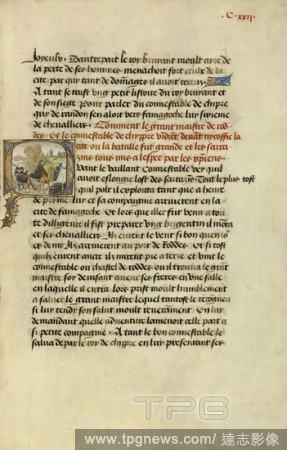 ·C·xxii·
Joyeulx· Dautrepart le roy bruyant moult aire de
la perte de ses hommes menachoit fort ceulx de la
cite par qui tant de dommages il auoit receuz
A tant se taist vng petit listoire du roy bruyant et
de son siege pour parler du connestable de chypre
qui de randon sen aloit vers famagoche luy sixieme
de chevalliers· Comment le grant maistre de ro
des· Et le connestable de chippre vindrent deuant nycossie la
cite ou la bataille fut grande et les sarra
zins tous mis a lespee par les xpiens
Vant le vaillant Connestable vey quil
auoit eslongie lost des sarrazins Tout le plus tost
quil polt il exploitta tant que a heure
de prime luy et sa compagnie arriuerent en la
cite de famagoche Et lors que illec fut venu a tou
te dilligence il fist preparer vng brigentin il monta
et ses chevalliers Ilz eurent le vent si bon que nuit
et demi Ilz arriuerent au port de Roddes Et si tost
quilz eurent ancré ilz mirent pie a terre et vint le
connestable ou chastel de roddes ou il trouua le grant
maistre soy deuisant auecq ses freres en vne salle
en laquelle il entra lors prist moult humblement
a saluer le grant maistre lequel tantost le recongneu
si luy rendy son salut moult reueramment En luy
demandant quelle aduenture lamenoit celle part a
si petite compagnie· A tant le bon connestable le
salua de par le roy de chyppre en luy presentant ses
TPG
www.tpgnews.com/達志影像